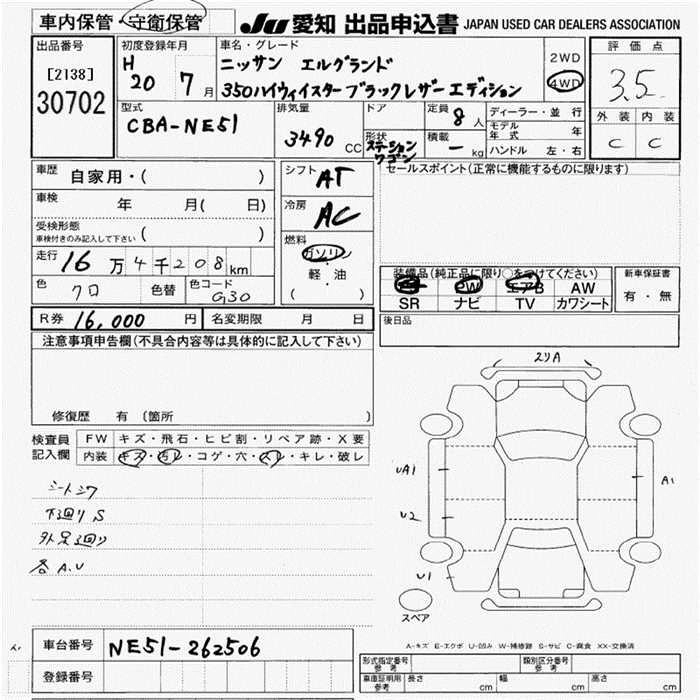 車内保管・守衛保管 JU 愛知 出品申込書 JAPAN USED CAR DEALERS ASSOCIATION
出品番号 初度登録年月 車名・グレード 評価点
[2138] H 20 7月 ニッサン エルグランド 2WD 3.5
30702 350ハイウェイスターブラックレザーエディション 4WD
型式 排気量 ドア 定員 8人 ディーラー・並行 外装 内装
CBA-NE51 3490 CC 形状 ステーションワゴン 積載 ー kg モデル年式 年 C C
ハンドル 左・右
車歴 自家用・( ) シフト AT セールスポイント(正常に機能するものに限ります)
車検 年 月( 日) 冷房 AC
受検形態 ( )
車検付きのみ記入して下さい
燃料 ガソリン
走行 16万4千208km 軽・油
装備品(純正品に限り○をつけてください) 新車保証書
色 クロ 色替 色コード G30 ( )
PW エアB AW 有・無
SR ナビ TV カワシート
R券 16,000円 名変期限 月 日 後日品
注意事項申告欄(不具合内容等は具体的に記入して下さい)
修復歴 有 〔箇所 〕
検査員 FW キズ・飛石・ヒビ割・リペア跡・X要
記入欄 内装 キズ・汚レ・コゲ・穴・スレ・キレ・破レ
シートシワ
下廻りS
各A.U
スリA
UA1
A1
U2
U1
スペア
A-キズ E-エクボ U-凹み W-補修跡 S-サビ C-腐食 XX-交換済
車台番号 NE51-262506
登録番号
形式指定番号 参考 類別区分番号 参考
車庫証明用 参考 長さ cm 幅 cm 高さ cm